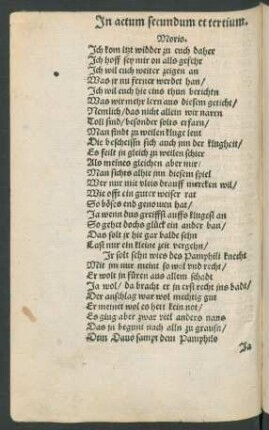 In actum secundum et tertium.
Moris.
Ich kom itzt widder zu euch daher
Ich hoff sey mir on alls gefehr
Ich wil euch weiter zeigen an
Was jr nu ferner werdet han/
Ich wil euch hie eins thun berichtn
Was wir mehr lern aus diesem geticht/
Nemlich/das nicht allein wir naren
Toll sind/besonder solts erfarn/
Man findt zu weilen kluge leut
Die bescheissn sich auch jnn der klugheit/
Es feilt jn gleich zu weilen schier
Als meines gleichen aber mir/
Man sichts alhie jnn diesem spiel
Wer nur mit vleis drauff mercken wil/
Wie offt ein guter weiser rat
So böses end genomen hat/
Ja wenn dus greiffst auffs klugest an
So gehet dochs glück ein ander ban/
Das solt jr hie gar balde sehn
Last nur ein kleine zeit vergehn/
Jr solt sehn wies des Pamphili knecht
Mit jm nur meint so wol vnd recht/
Er wolt jn füren aus allem schadt
Ja wol/ da bracht er jn erst recht jns badt/
Der anschlag war wol mechtig gut
Er meinet wol es hett kein not/
Es ging aber zwar viel anders naus
Das jn begunt nach alln zu grausn/
Dem Dauo sampt dem Pamphils
Ja